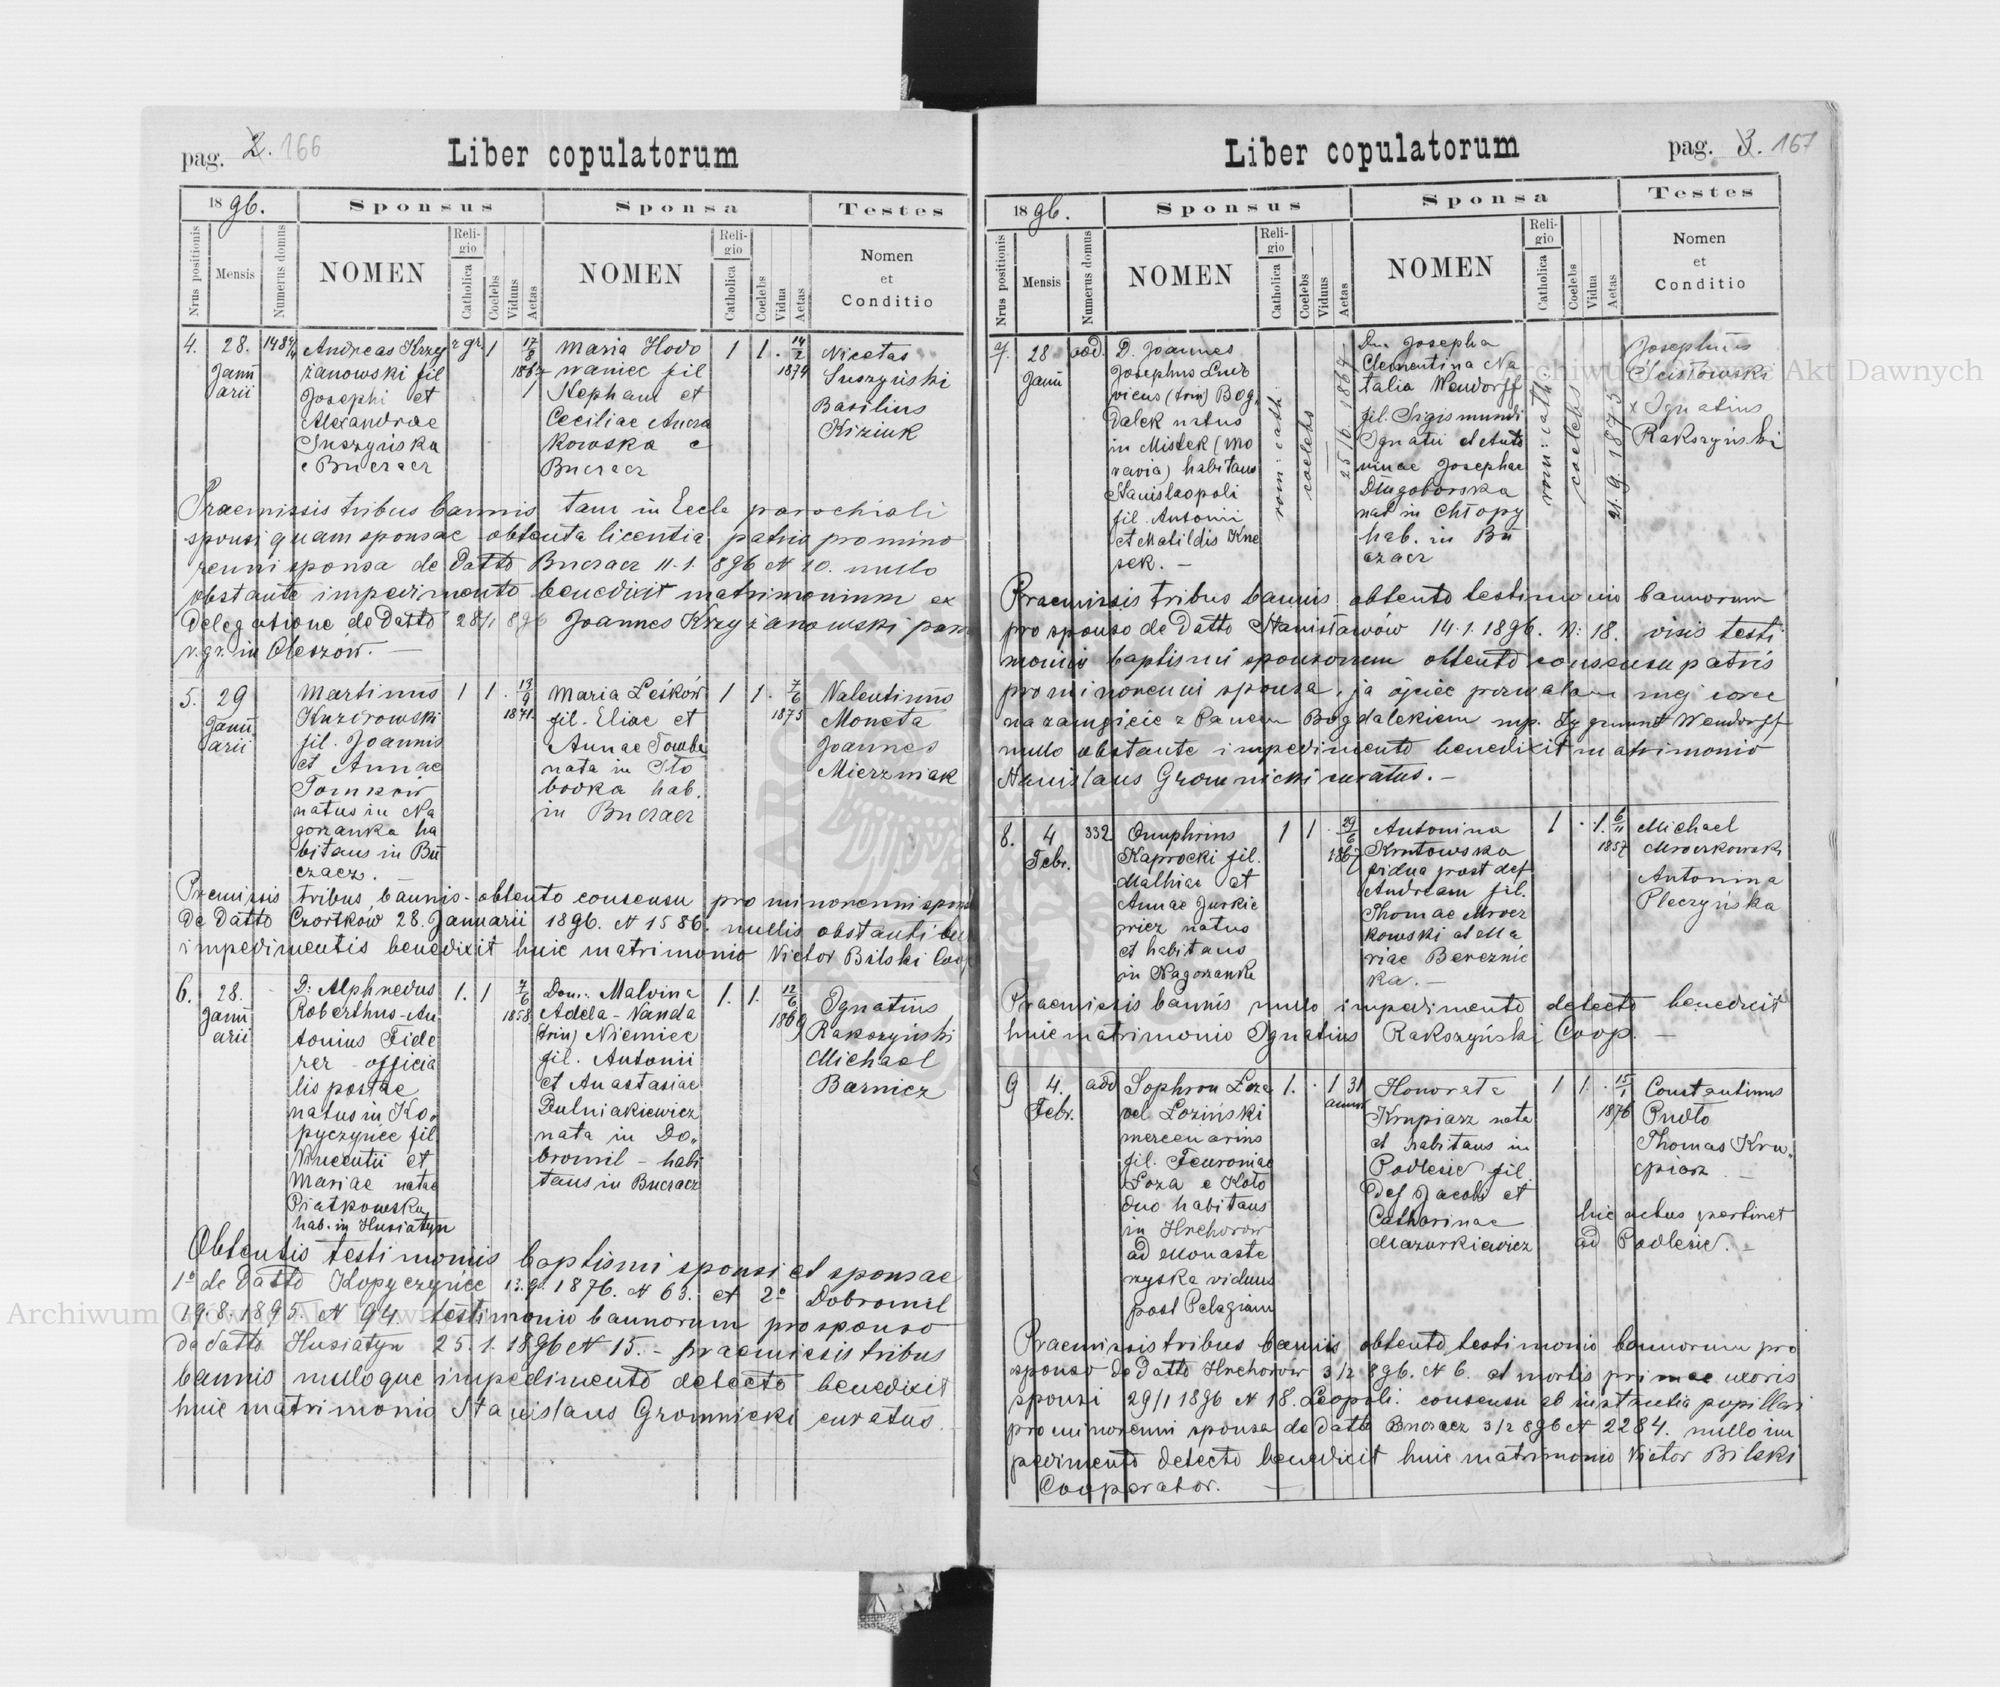 pag. 2. 166
Liber copulatorum
1896.
Sponsus
Sponsa
Testes
Nrus positionis
Mensis
Numerus domus
NOMEN
Religio
Catholica
Coelebs
Viduus
Aetas
NOMEN
Religio
Catholica
Coelebs
Vidua
Aetas
Nomen
et
Conditio
4. 28. Januarii
Andreas Krzy
żanowski fil
Josephi et
Alexandrae
Suszyńska
e Buczacz
r gr 1 17/8 1867
Maria Hovo
waniec fil
Stephani et
Ceciliae
kowska e
Buczacz
1 1. 14/2 1874
Nicetas
Suszyński
Basilius
Kiziuk
Praemissis tribus bannis tam in Eccla parochiali
sponsi quam sponsae obtenta licentia patris pro mino
renni sponsa de Datto Buczacz 11.1. 896 N 10. nullo
obstante impedimento benedixit matrimonium ex
Delegatione de Datto 28/1 896 Joannes Krzyżanowski par
r. gr. in Oleszów. —
5. 29
Januarii
Martinus
Kuzirowski
fil. Joannis
et Annae
Tomków
natus in Na
gorzanka ha
bitans in Bu
czacz. —
1 1. 13/9 1871.
Maria Leśków
fil. Eliae et
Annae
nata in Sło
bodka hab.
in Buczacz
1 1. 7/6 1875
Valentinus
Moneta
Joannes
Mierzwiak
Premissis tribus bannis obtento consensu pro minorenni spon
de Datto Czortków 28. Januarii 1896. N 1586. nullis obstantibus
impedimentis benedixit huic matrimonio Victor Bilski Coop
6. 28.
Januarii
D: Alphredus
Roberthus-An
tonius Fide
rer - officia
lis postae
natus in Ko„
pyczyńce fil
Vincentii et
Mariae natae
Piątkowska
hab. in Husiatyn
1. 1 7/6 1858
Dom: Malvina
Adela-Vanda
(trin) Niemiec
fil. Antonii
et Anastasiae
Dulniakiewicz
nata in Do„
bromil - habi
tans in Buczacz
1. 1. 12/6 1869
Ignatius
Rakszyński
Michael
Barnicz
Obtentis testimoniis baptismi sponsi et sponsae
1º de Datto Kopyczyńce 13.9. 1876. N 63. et 2º Dobromil
19.8.1895. N 94 testimonio bannorum pro sponso
de datto Husiatyn 25.1.1896 N 15. - praemissis tribus
bannis nulloque impedimento detecto benedixit
huic matrimonio Stanislaus Gromnicki curatus.
Liber copulatorum
pag. 3. 167
1896.
Sponsus
Sponsa
Testes
Nrus positionis
Mensis
Numerus domus
NOMEN
Religio
Catholica
Coelebs
Viduus
Aetas
NOMEN
Religio
Catholica
Coelebs
Vidua
Aetas
Nomen
et
Conditio
7. 28
Janu
D. Joannes
Josephus Lud
vicus (trin) Bog„
dalek natus
in Mistek (Mo
ravia) habitans
Stanislaopoli
fil. Antonii
et Matildis Kne
sek. —
rom: cath:
coelebs
Dna Josepha
Clementina Na
talia Wendorff
fil. Sigismundi
Ignatii et Anto
ninae Josephae
Długoborska
nat in Chłopy
hab. in Bu
czacz
rom: cath
coelebs
21.9.1875
Josephus
x Ignatius
Rakszyński
Praemissis tribus bannis obtento testimonio bannorum
pro sponso de Datto Stanisławów 14.1.1896. N: 18. visis testi
moniis baptismi sponsorum obtento consensu patris
pro minorenni sponsa. ja ojciec pozwalam mej córce
na zamęście z Panem Bogdalekiem mp. Zygmunt Wendorff
nullo obstante impedimento benedixit matrimonio
Stanislaus Gromnicki curatus. —
8. 4
Febr.
332
Onuphrius
Kaprocki fil.
Mathiae et
Annae Jurkie
wicz natus
et habitans
in Nagorzanka
1 1. 29/6 1867
Antonina
Krutowska
vidua post def
Andream fil.
Thomae Mrocz
kowski et Ma
riae Bereznic
ka. —
1 . 1. 6/11 1857
Michael
Mroczkowski
Antonina
Pleczyńska
Praemissis bannis nullo impedimento detecto benedixit
huic matrimonio Ignatius Rakszyński Coop. —
9 4.
Febr.
Sophron Łoza
vel Łoziński
mercenarius
fil. Feuroniae
Łoza e Koło
duo habitans
in Hrehorów
ad Monaste
rzyska viduus
post Pelagiam
1. . 1 31 annor
Honorata
Krupiarz nata
et habitans in
Podlesie fil
def Jacobi et
Catharinae
Mazurkiewicz
1 1. 15/1 1876
Constantinus
Pudło
Thomas Kru„
piarz —
hic actus pertinet
ad Podlesie. –
Praemissis tribus bannis obtento testimonio bannorum pro
sponso de Datto Hrehorów 3/2 896. N 6. et mortis primae uxoris
sponsi 29/1 1896 N 18. Leopoli. consensu ab instantia pupillari
pro minorenni sponsa de datto Buczacz 3/2 896 N 2284. nullo im
pedimento detecto benedixit huic matrimonio Victor Bilski
Cooperator. —
Archiwum Główne Akt Dawnych